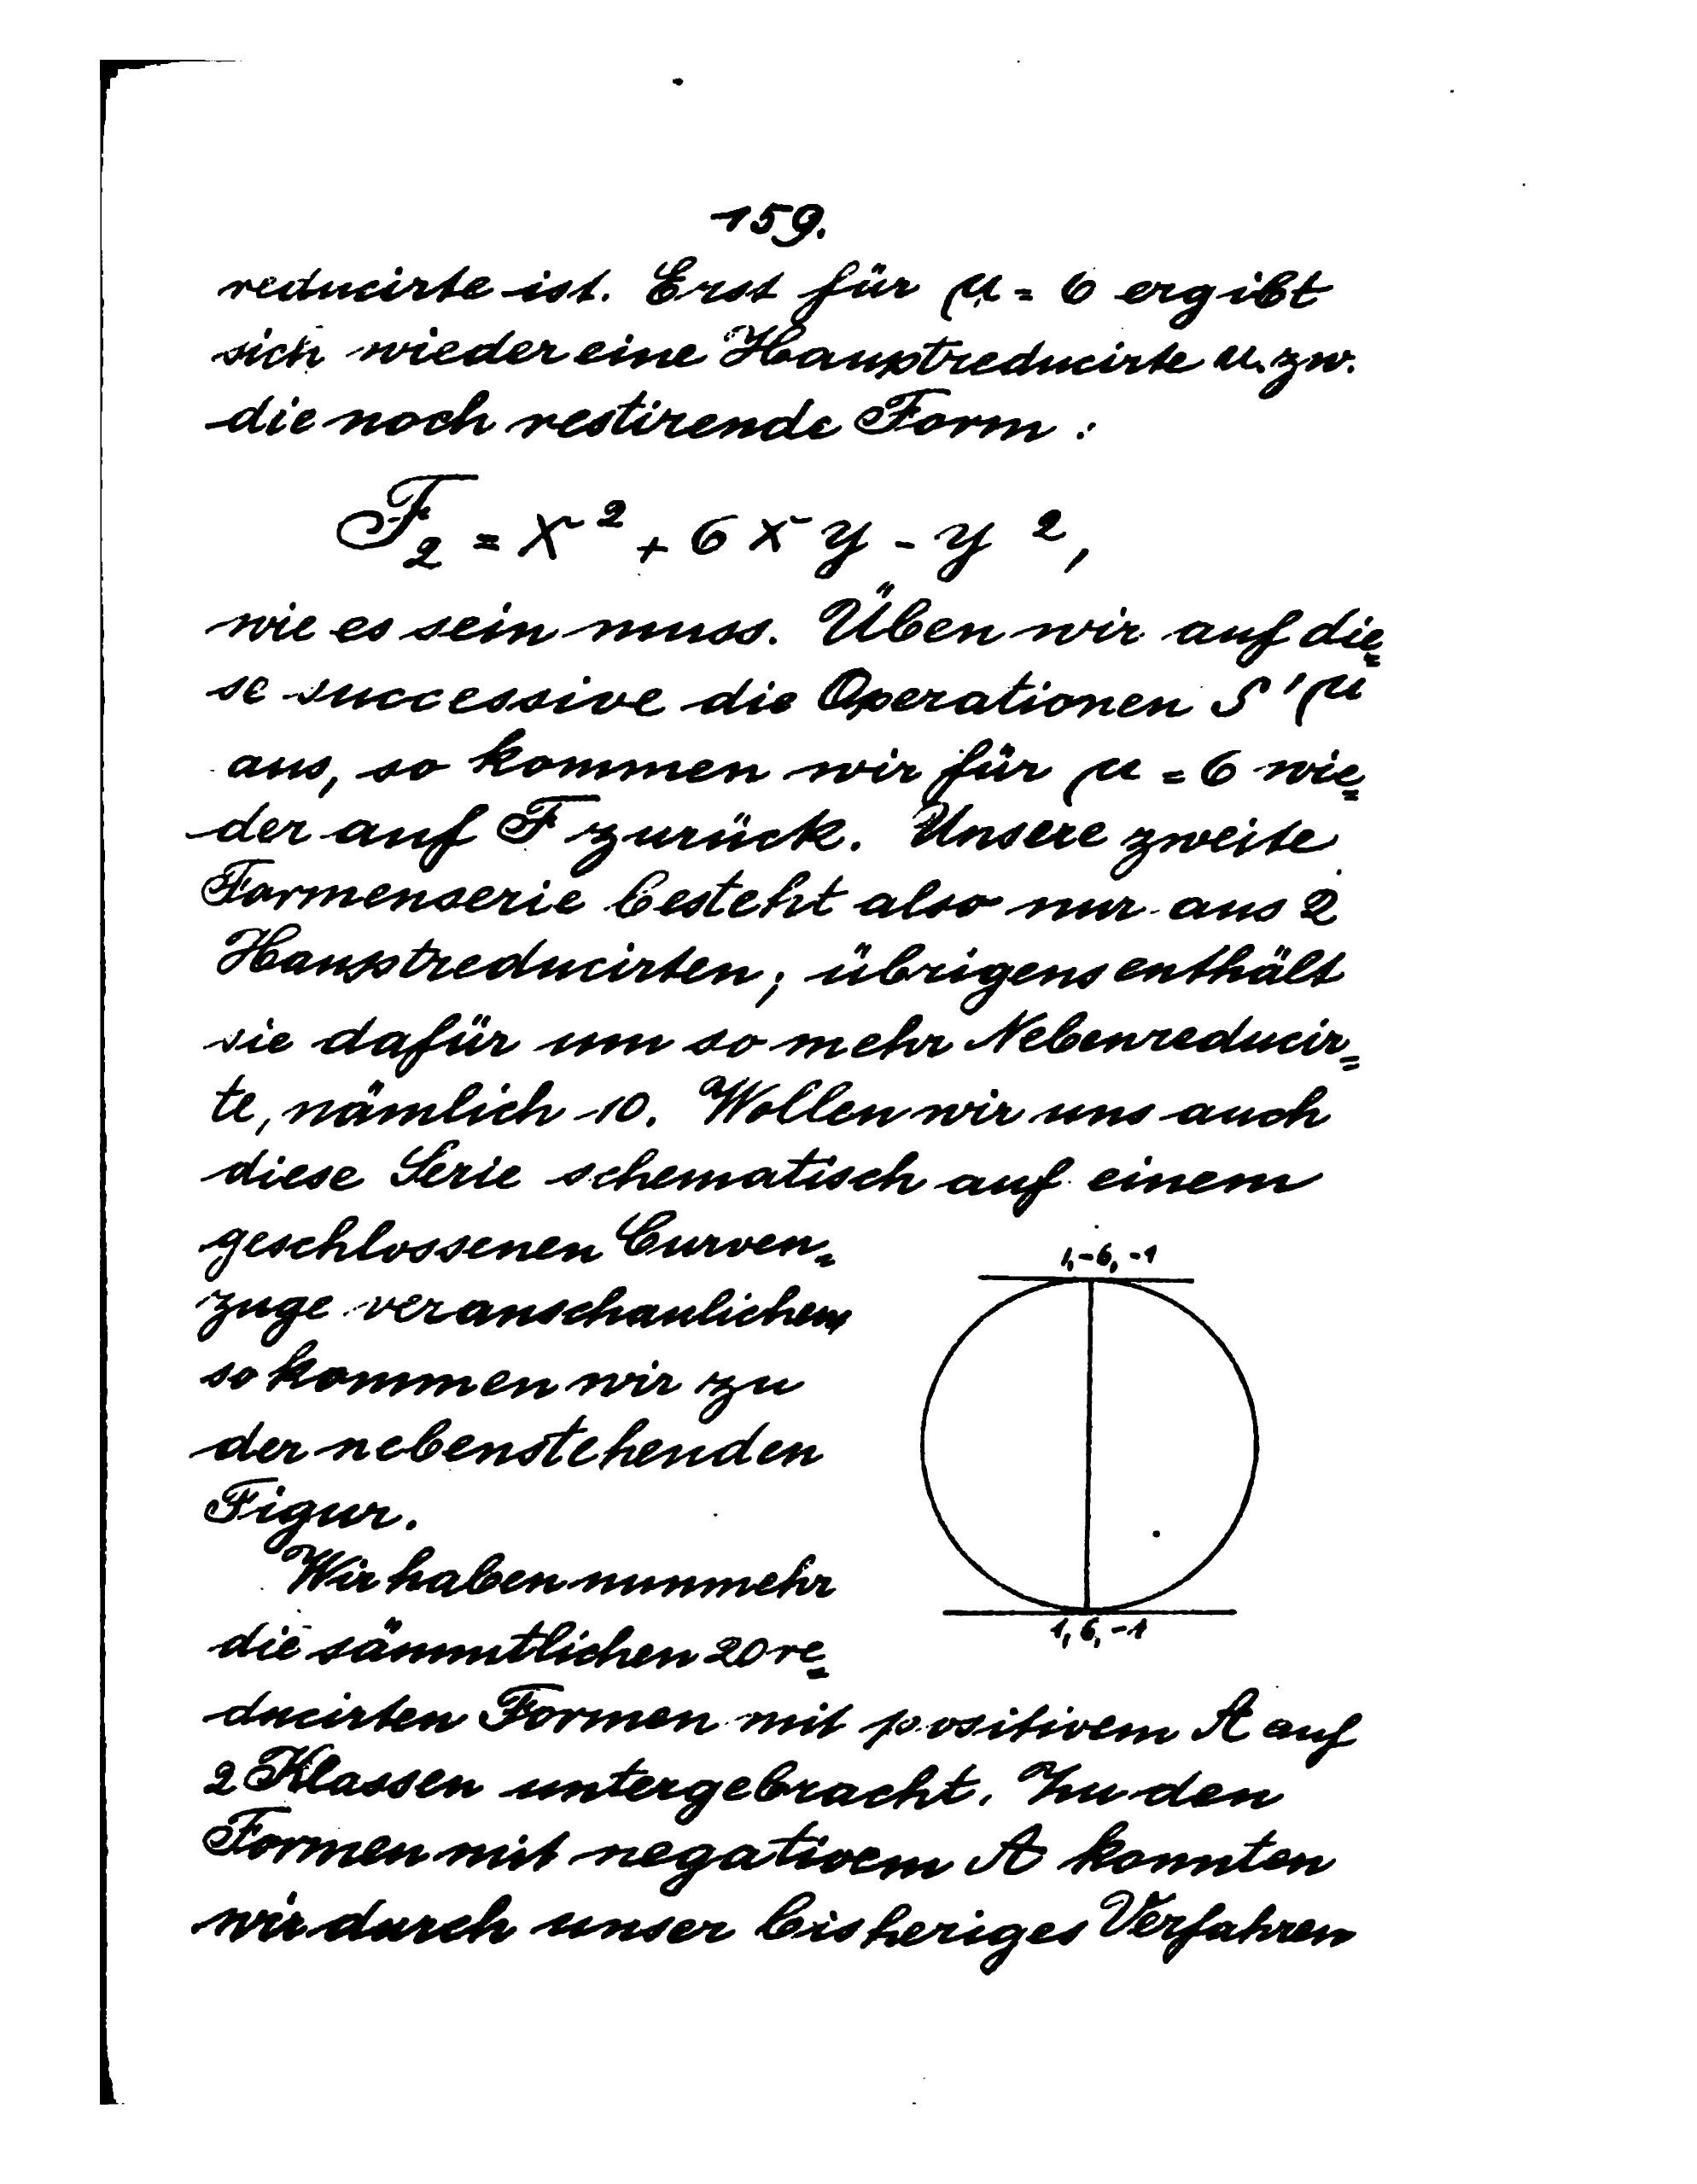 159.
reducirte ist. Erst für μ = 6 ergibt
sich wieder eine Hauptreducirte u. zw.
die noch restirende Form :
F₂ = x² + 6xy - y²,
wie es sein muss. Üben wir auf die=
se successive die Operationen S'μ
aus, so kommen wir für μ = 6 wie=
der auf F zurück. Unsere zweite
Formenserie besteht also nur aus 2
Hauptreducirten; übrigens enthält
sie dafür um so mehr Nebenreducir=
te, nämlich 10. Wollen wir uns auch
diese Serie schematisch auf einem
geschlossenen Curven=
zuge veranschaulichen,
so kommen wir zu
der nebenstehenden
Figur.
1, -6, -1
1, 6, -1
Wir haben nunmehr
die sämmtlichen 20 re=
ducirten Formen mit positivem A auf
2 Klassen untergebracht. Zu den
Formen mit negativem A konnten
wir durch unser bisheriges Verfahren